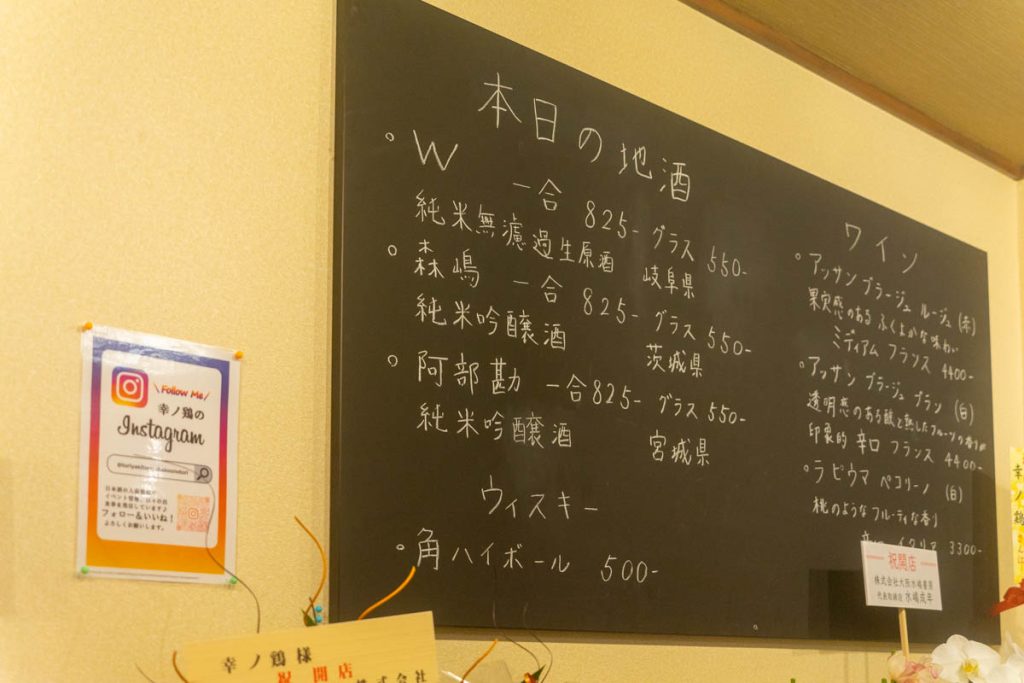 本日の地酒
。W 一合 825- グラス 550-
純米無濾過生原酒 岐阜県
。森嶋 一合 825- グラス 550-
純米吟醸酒 茨城県
。阿部勘 一合825- グラス 550-
純米吟醸酒 宮城県
ウィスキー
。角ハイボール 500-
ワイン
。アッサンブラージュ ルージュ (赤)
果実感のある ふくよかな味わい
ミディアム フランス 4400-
。アッサンブラージュ ブラン (白)
透明感のある酸と熟したフルーツの香りが
印象的 辛口 フランス 4400-
。ラピウマ ペコリーノ (白)
桃のようなフルーティな香り
イタリア 3300-
Follow Me
幸ノ鶏の
Instagram
日本酒の入荷情報や
イベント情報、日々の出
来事を発信しています♪
フォロー&いいね!
よろしくお願いします。
幸ノ鶏様
祝開店
株式会社
祝開店
株式会社大阪水嶋書房
代表取締役 水嶋成年
幸ノ鶏